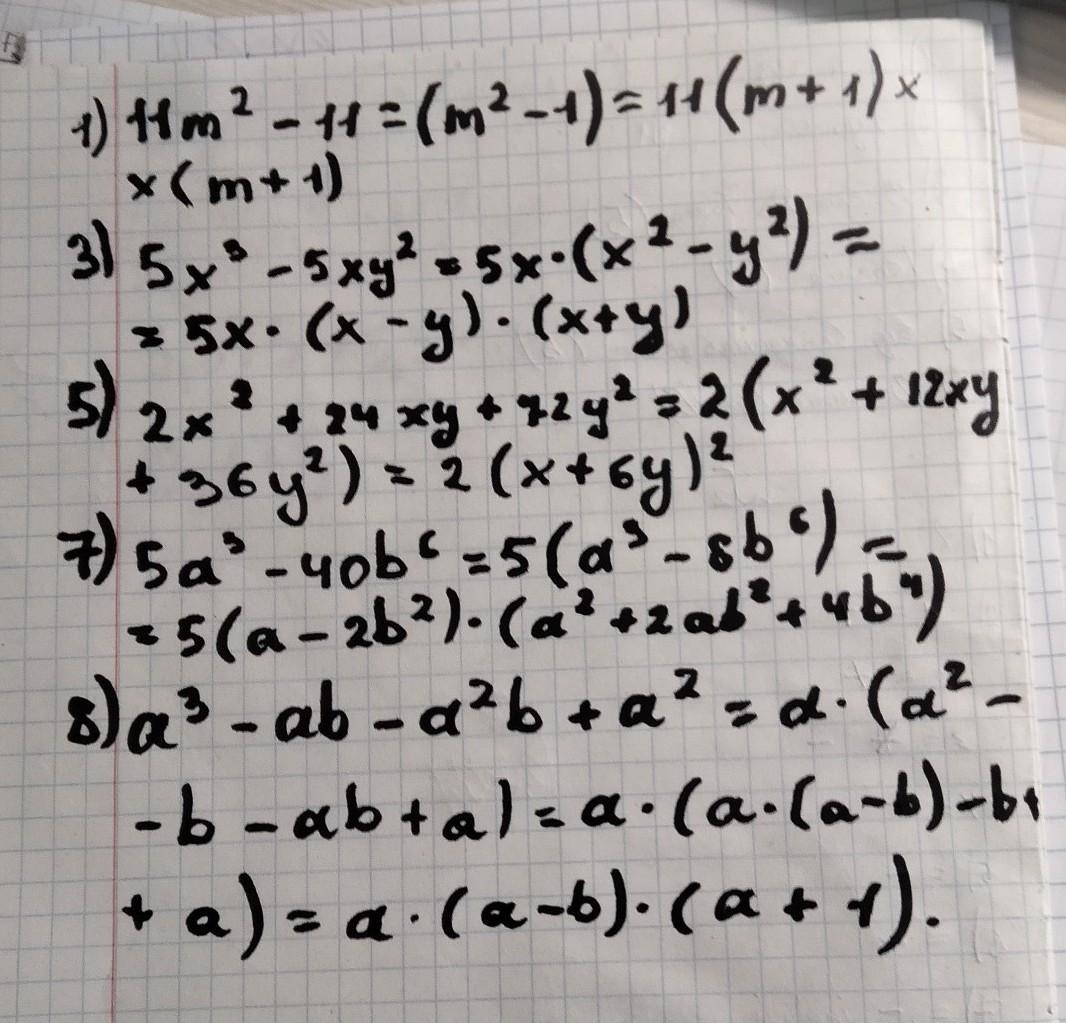 1) 11m² - 11 = (m² - 1) = 11(m + 1) ×
× (m + 1)
3) 5x³ - 5xy² = 5x · (x² - y²) =
= 5x · (x - y) · (x + y)
5) 2x² + 24xy + 72y² = 2(x² + 12xy
+ 36y²) = 2(x + 6y)²
7) 5a³ - 40b⁶ = 5(a³ - 8b⁶) =
= 5(a - 2b²) · (a² + 2ab² + 4b⁴)
8) a³ - ab - a²b + a² = a · (a² -
- b - ab + a) = a · (a · (a - b) - b +
+ a) = a · (a - b) · (a + 1).